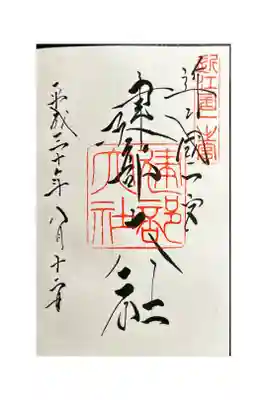 近江国一之宮
近江國一宮
建部大社
建部大社
平成三十年八月十日